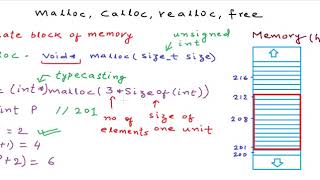 malloc, calloc, realloc, free
ate block of memory
unsigned
int
oc - void* malloc(size_t size)
Memory (h
typecasting
(int*) malloc( 3 * sizeof(int))
int P // 201
no of elements
size of one unit
= 2
+1) = 4
P+2) = 6
216
212
208
201
200